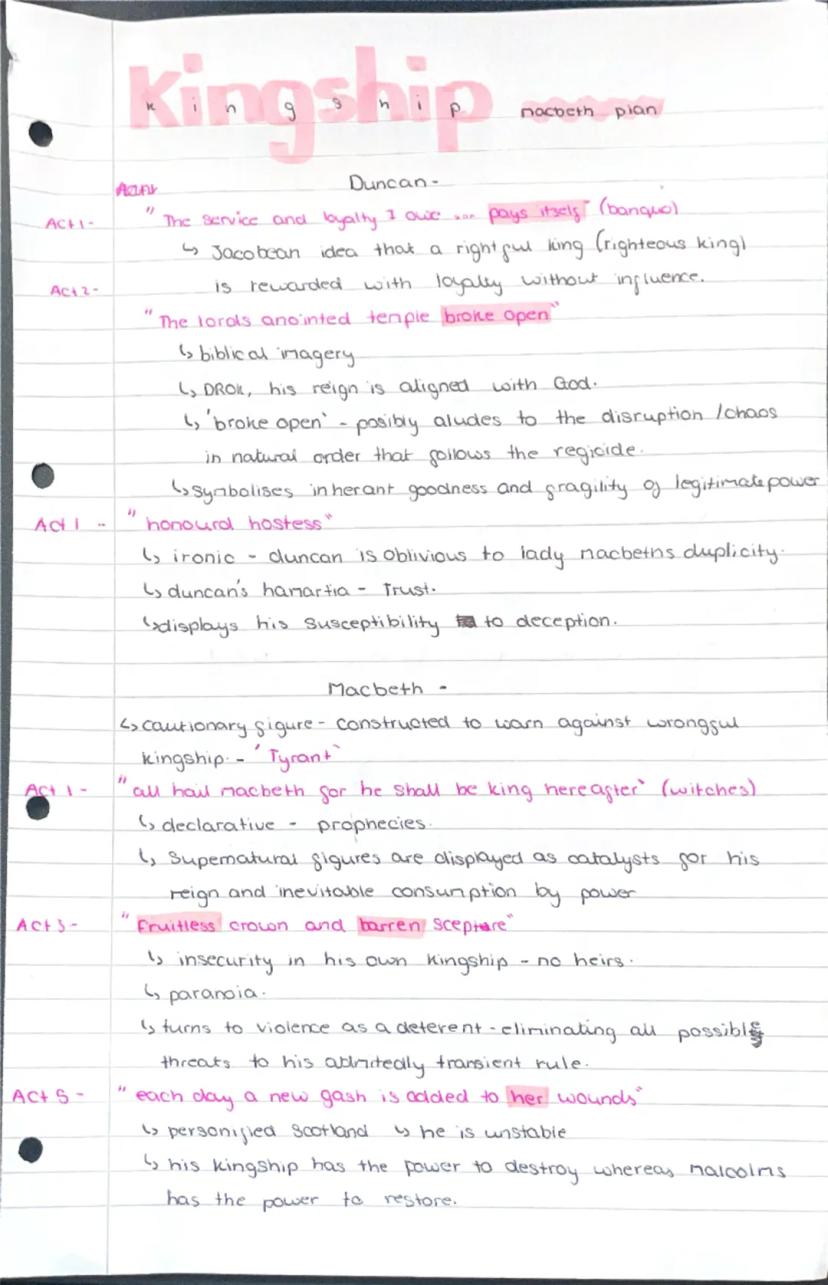 Kingship
kingship macbeth plan
Duncan-
Act 1- "The service and loyalty I owe ... pays itself" (banquo)
↳ Jacobean idea that a rightful king (righteous king)
Act 2- is rewarded with loyalty without influence.
"The lords anointed temple broke open"
↳ biblical imagery
↳ DROK, his reign is aligned with God.
↳ 'broke open' - posibly aludes to the disruption /chaos
in natural order that follows the regicide.
↳ symbolises inherant goodness and fragility of legitimate power
Act 1 - "honourd hostess"
↳ ironic - duncan is oblivious to lady macbeths duplicity.
↳ duncan's hamartia - Trust.
↳ displays his susceptibility to deception.
Macbeth -
↳ cautionary figure - constructed to warn against wrongful
kingship. - 'Tyrant'
Act 1 - "all hail macbeth for he shall be king hereafter" (witches)
↳ declarative - prophecies.
↳ Supernatural figures are displayed as catalysts for his
reign and inevitable consumption by power
Act 3- "Fruitless crown and barren sceptre"
↳ insecurity in his own kingship - no heirs.
↳ paranoia.
↳ turns to violence as a deterent - eliminating all possible
threats to his admitedly transient rule.
Act 5 - "each day a new gash is added to her wounds"
↳ personified Scotland ↳ he is unstable
↳ his kingship has the power to destroy whereas malcolms
has the power to restore.